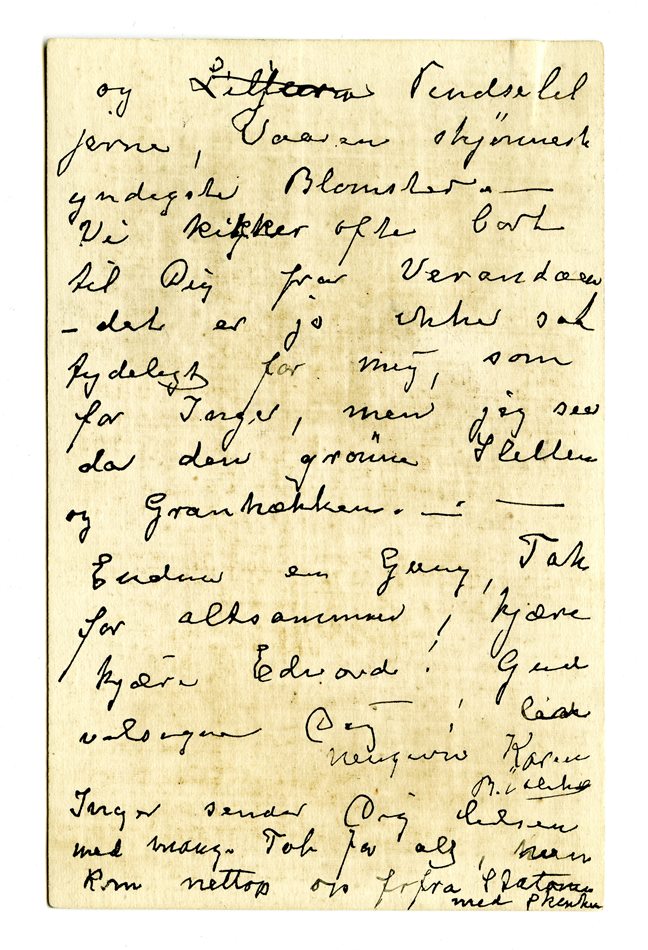 og Liljerne Pindselil
jerne, Vaaren skjønneste
yndigste Blomster. —
Vi kikker ofte bort
til Dig fra Verandaen
– det er jo ikke saa
tydeligt for mig, som
for Inger, men jeg seer
da den grønne Sletten
og Granhækken. — —
Endnu en Gang, Tak
for altsammen, kjære
kjære Edvard! Gud
velsigne Dig!
Karen
Inger sender Dig
med mange Tak for alt, hun
kom nettop op fra
med